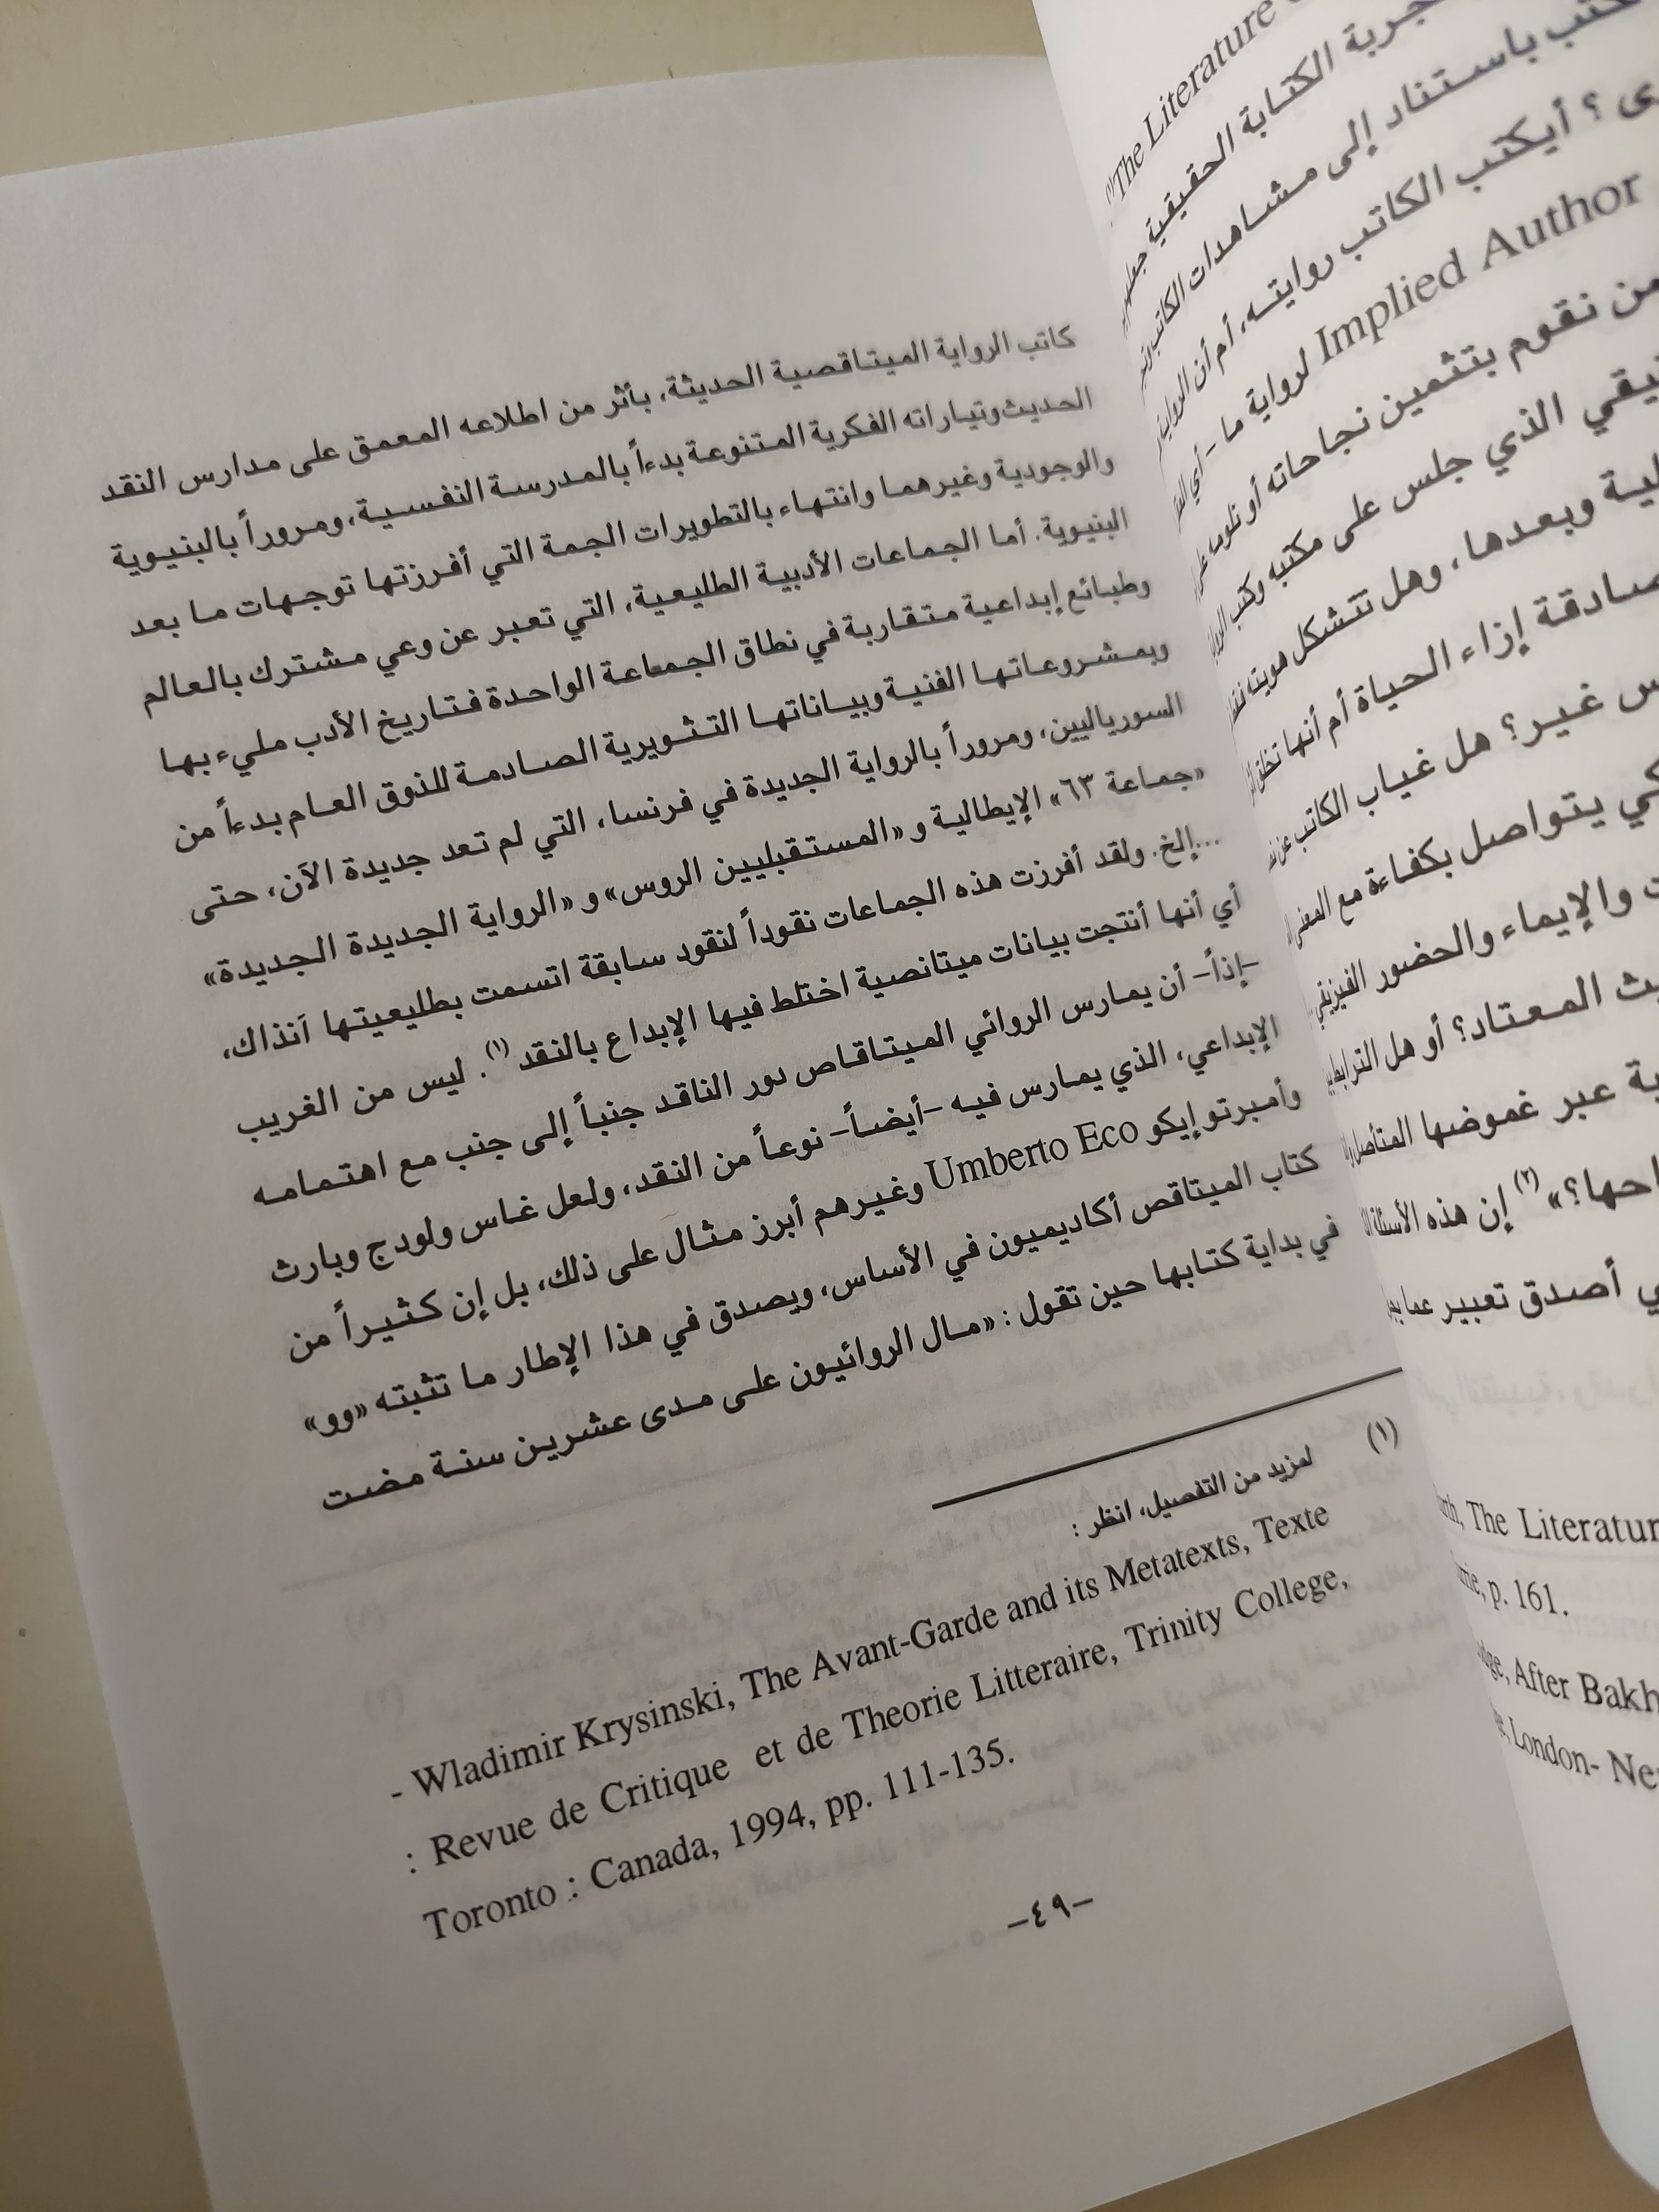 كاتب الرواية الميتاقصية الحديثة، بأثر من اطلاعه المعمق على مدارس النقد
الحديث وتياراته الفكرية المتنوعة بدءاً بالمدرسة النفسية، ومروراً بالبنيوية
والوجودية وغيرهما وانتهاء بالتطويرات الجمة التي أفرزتها توجهات ما بعد
البنيوية. أما الجماعات الأدبية الطليعية، التي تعبر عن وعي مشترك بالعالم
وطبائع إبداعية متقاربة في نطاق الجماعة الواحدة فتاريخ الأدب مليء بها
وبمشروعاتها الفنية وبياناتها التثويرية الصادمة للذوق العام بدءاً من
السورياليين، ومروراً بالرواية الجديدة في فرنسا، التي لم تعد جديدة الآن، حتى
«جماعة ٦٣» الإيطالية و «المستقبليين الروس» و «الرواية الجديدة الجديدة»
...إلخ. ولقد أفرزت هذه الجماعات نقوداً لنقود سابقة اتسمت بطليعيتها آنذاك،
أي أنها أنتجت بيانات ميتانصية اختلط فيها الإبداع بالنقد (١). ليس من الغريب
-إذاً- أن يمارس الروائي الميتاقاص دور الناقد جنباً إلى جنب مع اهتمامه
الإبداعي، الذي يمارس فيه -أيضاً- نوعاً من النقد، ولعل غاس ولودج وبارث
وأمبرتو إيكو Umberto Eco وغيرهم أبرز مثال على ذلك، بل إن كثيراً من
كتاب الميتاقص أكاديميون في الأساس، ويصدق في هذا الإطار ما تثبته «وو»
في بداية كتابها حين تقول : «مال الروائيون على مدى عشرين سنة مضت
(١) لمزيد من التفصيل، انظر :
- Wladimir Krysinski, The Avant-Garde and its Metatexts, Texte
: Revue de Critique et de Theorie Litteraire, Trinity College,
Toronto : Canada, 1994, pp. 111-135.
-٤٩-
The Literature
الكتابة الحقيقية
باستناد إلى مشاهدات الكاتب
؟ أيكتب الكاتب روايته، أم أن الرواية
Implied Author لرواية ما - أي
من نقوم بتثمين نجاحاته أو نلومه
الذي جلس على مكتبه وكتب
وبعدها، وهل تتشكل هويته
صادقة إزاء الحياة أم أنها تخلق
غير؟ هل غياب الكاتب عن
كي يتواصل بكفاءة مع
والإيماء والحضور الفيزيقي
المعتاد؟ أو هل
عبر غموضها المتأصل
(٢) إن هذه الأسئلة
أصدق تعبير عما
The Literatur
p. 161.
After Bakh
London- Ne